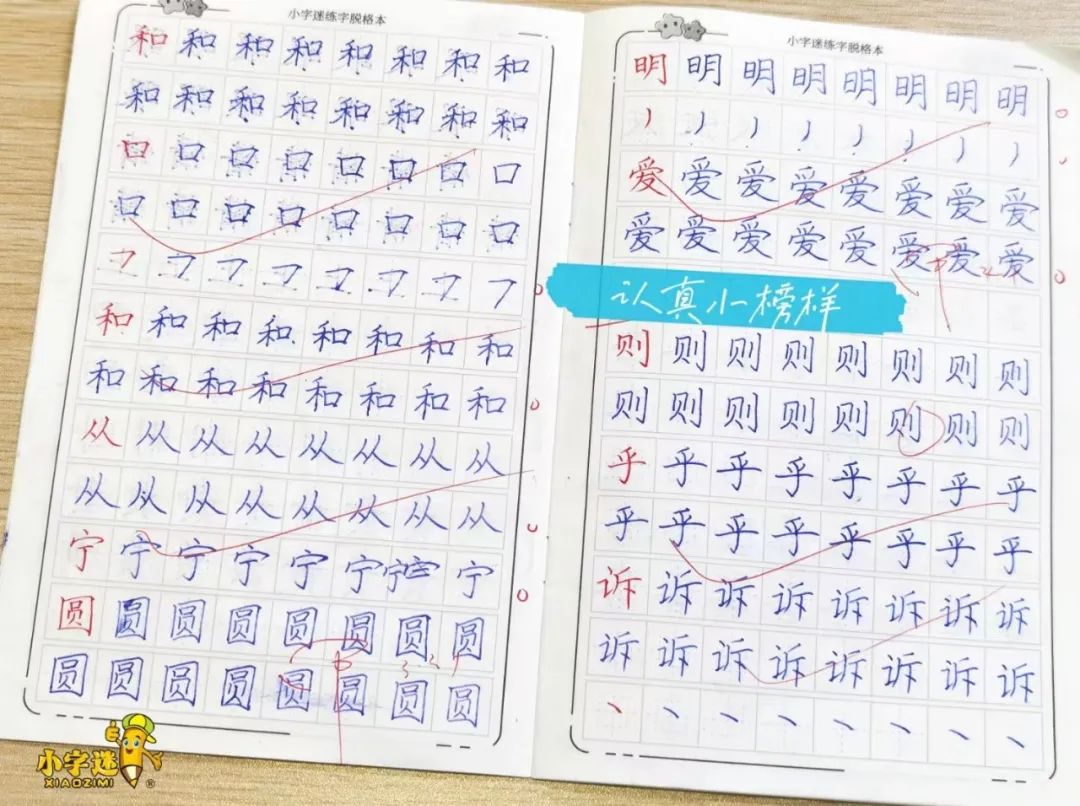 小字迷练字脱格本
和和和和和和和和
和和和和和和和和
口口口口口口口口
口口口口口口口口
和和和和和和和和
和和和和和和和和
从从从从从从从从
从从从从从从从从
宁宁宁宁宁宁宁宁
圆圆圆圆圆圆圆圆
圆圆圆圆圆圆圆圆
小字迷练字脱格本
明明明明明明明明
丿丿丿丿丿丿丿丿
爱爱爱爱爱爱爱爱
爱爱爱爱爱爱爱爱
认真小榜样
则则则则则则则则
则则则则则则则则
乎乎乎乎乎乎乎乎
乎乎乎乎乎乎乎乎
诉诉诉诉诉诉诉诉
诉诉诉诉诉诉诉诉
丶丶丶丶丶丶丶丶
小字迷
XIAOZIMI
®